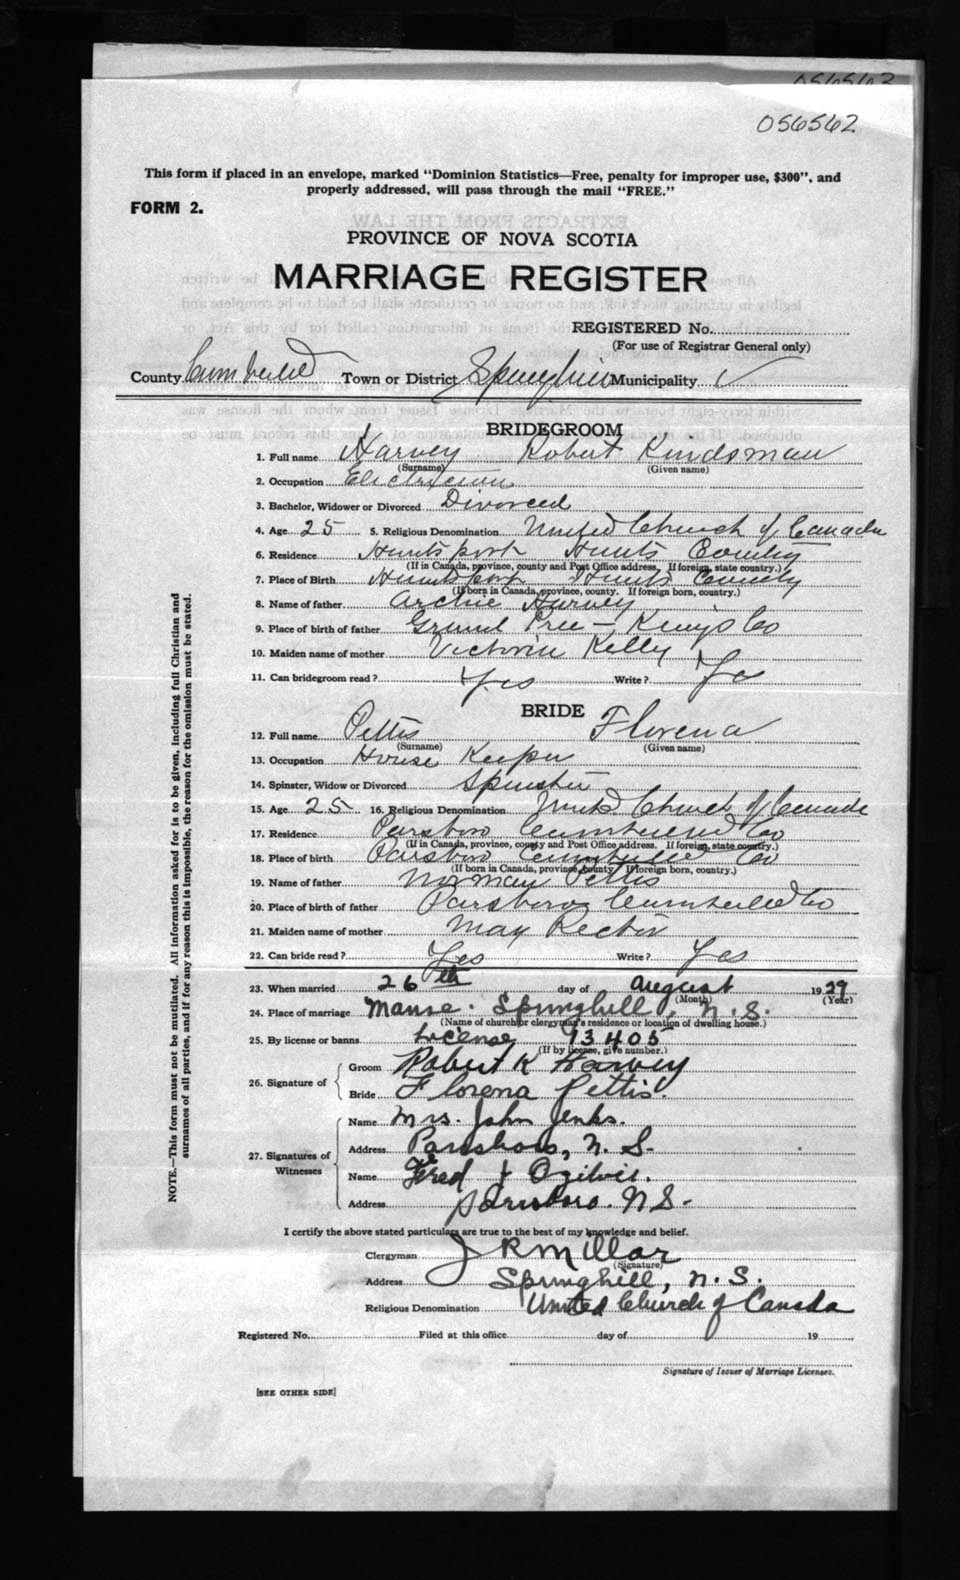 056562
056562
This form if placed in an envelope, marked "Dominion Statistics—Free, penalty for improper use, $300", and
properly addressed, will pass through the mail "FREE."
FORM 2.
EXTRACTS FROM THE LAW
PROVINCE OF NOVA SCOTIA
MARRIAGE REGISTER
REGISTERED No.
(For use of Registrar General only)
County Town or District Springhill Municipality
BRIDEGROOM
1. Full name Harvey Robert Kindsman
(Surname) (Given name)
2. Occupation Electrician
3. Bachelor, Widower or Divorced Divorced
4. Age 25 5. Religious Denomination United Church of Canada
6. Residence Hantsport Hants County
(If in Canada, province, county and Post Office address. If foreign, state country.)
7. Place of Birth Hantsport Hants County
(If born in Canada, province, county. If foreign born, country.)
8. Name of father Archie Harvey
9. Place of birth of father Grand Pree - Kings Co
10. Maiden name of mother Victoria Kelly
11. Can bridegroom read? Yes Write? Yes
BRIDE
12. Full name Pettis Florena
(Surname) (Given name)
13. Occupation House Keeper
14. Spinster, Widow or Divorced Spinster
15. Age 25 16. Religious Denomination United Church of Canada
17. Residence Parsboro Cumberland Co
(If in Canada, province, county and Post Office address. If foreign, state country.)
18. Place of birth Parsboro Cumberland Co
(If born in Canada, province, county. If foreign born, country.)
19. Name of father Norman Pettis
20. Place of birth of father Parsboro Co
21. Maiden name of mother May Rector
22. Can bride read? Yes Write? Yes
23. When married 26th day of August 1929
(Month) (Year)
24. Place of marriage Manse. Springhill, N.S.
(Name of church or clergyman's residence or location of dwelling house.)
25. By license or banns License 93405
(If by license, give number.)
26. Signature of
Groom Robert K Harvey
Bride Florena Pettis.
27. Signatures of Witnesses
Name Mrs. John Jenks.
Address Parrsboro, N.S.
Name Fred J Ogilvie.
Address Parrsboro. N.S.
I certify the above stated particulars are true to the best of my knowledge and belief.
Clergyman J R Millar
(Signature)
Address Springhill, N.S.
Religious Denomination United Church of Canada
Registered No. Filed at this office day of 19
Signature of Issuer of Marriage Licenses.
[SEE OTHER SIDE]
NOTE.—This form must not be mutilated. All information asked for is to be given, including full Christian and
surnames of all parties, and if for any reason this is impossible, the reason for the omission must be stated.